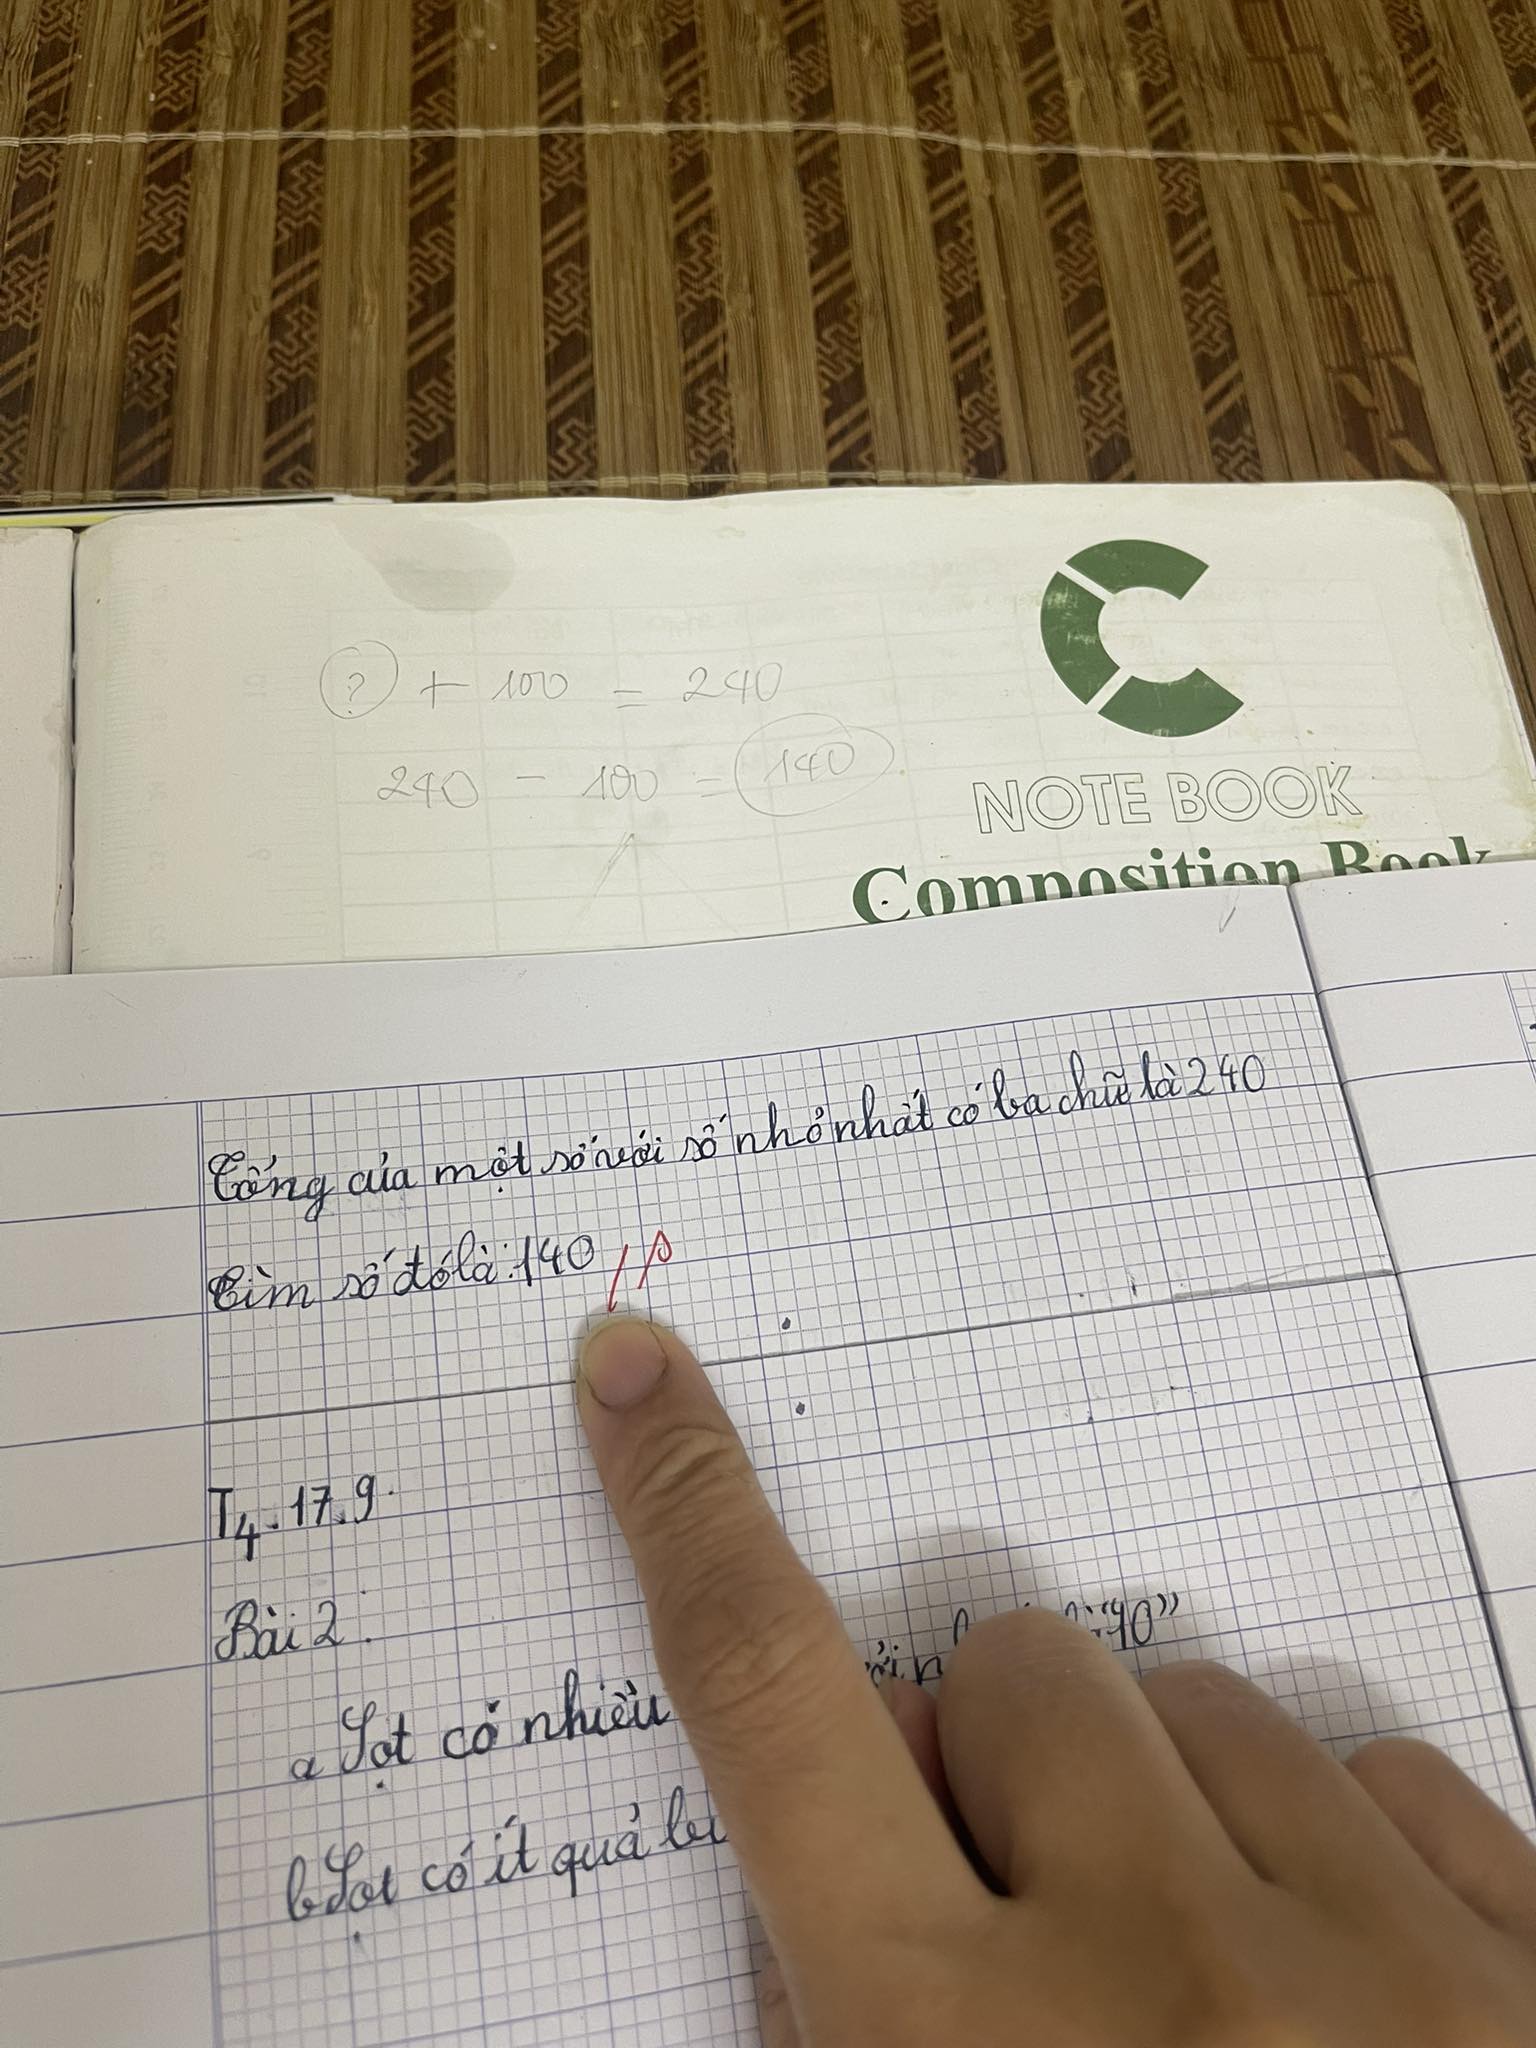 ? + 100 = 240
240 - 100 = 140
NOTE BOOK
Composition Book
Tổng của một số với số nhỏ nhất có ba chữ là 240
Tìm số đó là: 140
T4. 17. 9.
Bài 2:
a Sọt có nhiều "90"
b Sọt có ít quả